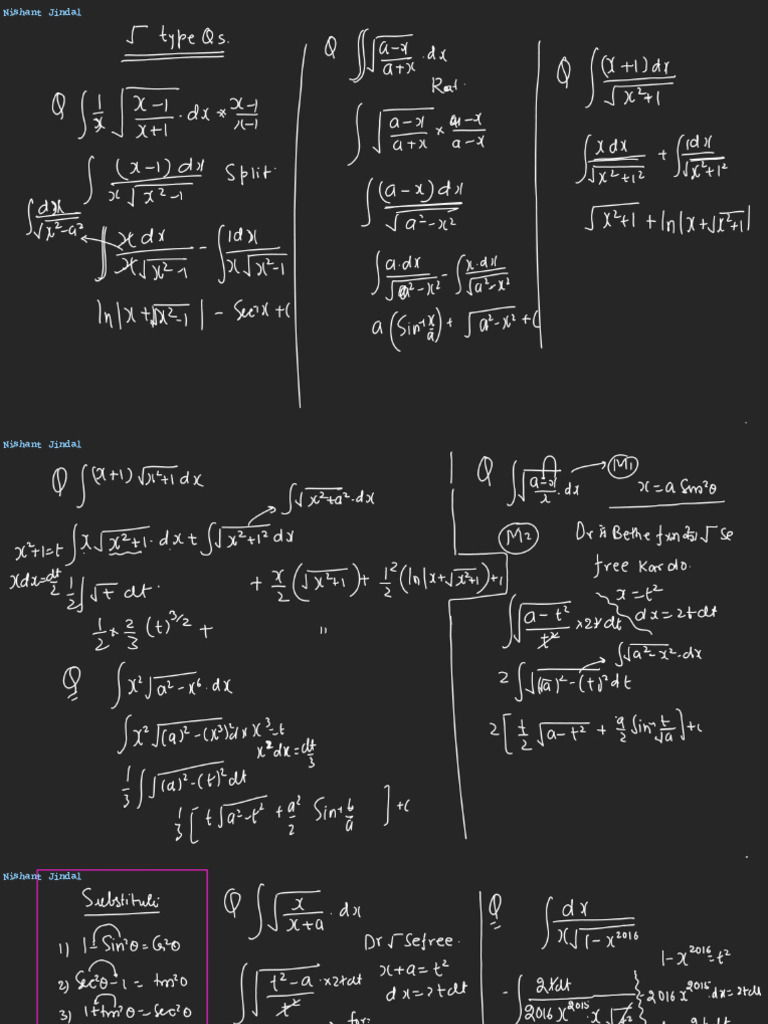 Nishant Jindal
√ type Qs.
Q ∫ 1/x √((x-1)/(x+1)) · dx * (x-1)/(x-1)
∫ (x-1) dx / (x√(x²-1)) Split
∫ dx/√(x²-a²)
∫ x dx / (x√(x²-1)) - ∫ 1dx / (x√(x²-1))
ln|x+√(x²-1)| - Sec⁻¹x + c
Q ∫√((a-x)/(a+x)) · dx
Rat.
∫ √((a-x)/(a+x) × (a-x)/(a-x))
∫ (a-x) dx / √(a²-x²)
∫ a.dx / √(a²-x²) - ∫ x.dx / √(a²-x²)
a (Sin⁻¹ x/a) + √(a²-x²) + C
Q ∫ (x+1) dx / √(x²+1)
∫ x dx / √(x²+1²) + ∫ 1dx / √(x²+1²)
√(x²+1) + ln|x+√(x²+1)|
Nishant Jindal
Q ∫ (x+1) √(x²+1) dx
∫√(x²+a²) · dx
x²+1=t ∫ x√(x²+1) · dx + ∫√(x²+1²) dx
xdx=dt/2 1/2 ∫√t dt. + x/2 (√(x²+1)) + 1²/2 (ln|x+√(x²+1)) + c
1/2 × 2/3 (t)^3/2 + "
Q ∫ x²√(a²-x⁶) · dx
∫ x²√((a)²-(x³)²) dx x³=t
x²dx=dt/3
1/3 ∫ √((a)²-(t)²) dt
1/3 [ t√(a²-t²) + a²/2 Sin⁻¹ t/a ] + c
Q ∫√((a-x)/x) · dx → M1
x = a Sin²θ
M2 Dr √Se
free Kardo.
x=t²
dx=2tdt
∫√((a-t²)/t²) × 2t dt
∫√(a²-x²) · dx
2 ∫√((√a)²-(t)²) dt
2 [ t/2 √(a-t²) + a/2 Sin⁻¹ t/√a ] + c
Nishant Jindal
1) 1-Sin²θ = Cos²θ
2) Sec²θ-1 = tan²θ
3) 1+tan²θ = Sec²θ
Q ∫√(x/(x+a)) · dx
Dr √Sefree.
x+a=t²
dx=2tdt
∫√((t²-a)/t²) × 2tdt
Q ∫ dx / (x√(1-x²⁰¹⁶))
1-x²⁰¹⁶=t²
-2016x²⁰¹⁵·dx=2tdt
-∫ 2tdt / (2016x²⁰¹⁵·x√t²)